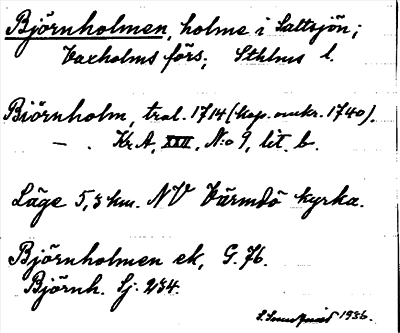 Björnholmen, holme i Saltsjön;
Vaxholms förs; Sthlms l.
Biörnholm, trol. 1714 (kop. omkr. 1740).
— . Kr A, XXII, No 9, lit. b.
Läge 5,8 km. NV Värmdö kyrka.
Björnholmen ek, G. 76.
Björnh. Sj: 284.
1936.